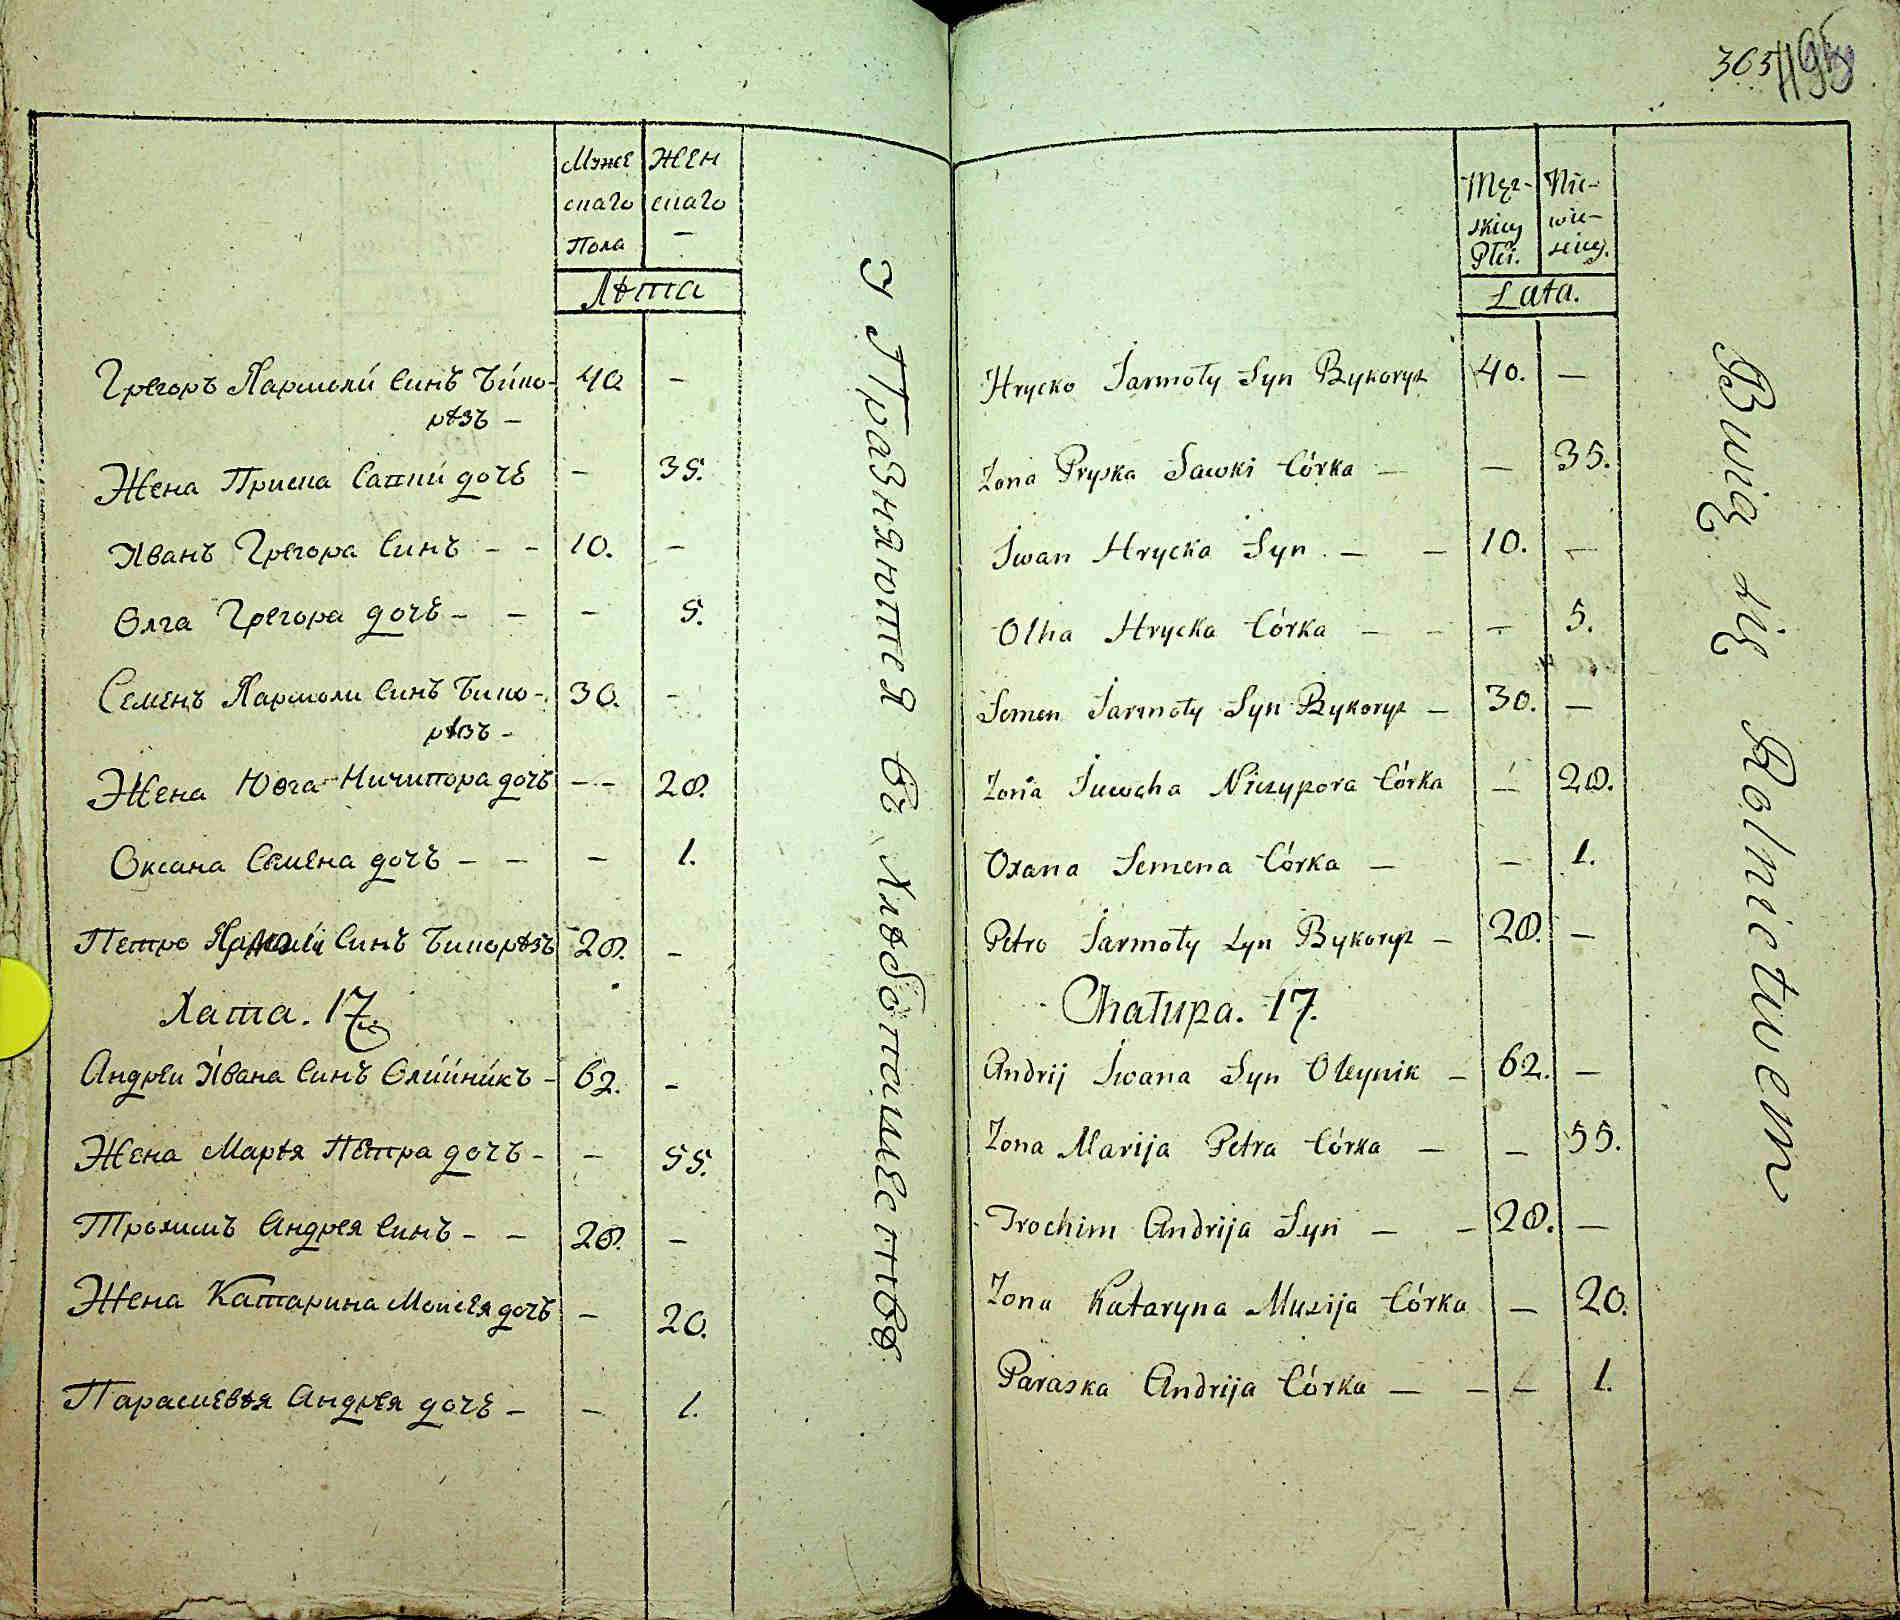 Муже
скаго
Пола
Жен
скаго
—
Лѣта
Грегоръ Ярмоли Синъ Бико- 40 —
рѣзъ —
Жена Приска Савки дочъ — 35.
Иванъ Грегора Синъ — — 10. —
Олга Грегора дочъ — — — 5.
Семенъ Ярмоли Синъ Бико- 30. —
рѣзъ —
Жена Ювга Ничипора дочъ — — 28.
Оксана Семена дочъ — — — 1.
Петро Ярмоли Синъ Бикорѣзъ 28. —
Хата. 17.
Андреи Ивана Синъ Олийникъ — 62. —
Жена Марѣя Петра дочъ — — 55.
Трохимъ Андрея Синъ — — 28. —
Жена Катарина Моисея дочъ — 20.
Параскевѣя Андрея дочъ — — 1.
Упразняются въ Хлѣбопашествѣ
365
Męz-
skiey
Płci.
Nie-
wie-
sciey.
Lata.
Hrycko Jarmoły Syn Bykoryz 40. —
Zona Pryska Sawki Córka — — 35.
Jwan Hrycka Syn — — 10. —
Olha Hrycka Córka — — — 5.
Semen Jarmoły Syn Bykoryz — 30. —
Zona Juwcha Niczypora Córka — 28.
Oxana Semena Córka — — 1.
Petro Jarmoły Syn Bykoryz — 28. —
Chałupa. 17.
Andrij Jwana Syn Oleynik — 62. —
Zona Marija Petra Córka — — 55.
Trochim Andrija Syn — — 28. —
Zona Kataryna Musija Córka — 20.
Paraska Andrija Córka — — — 1.
Bawią się Rolnictwem